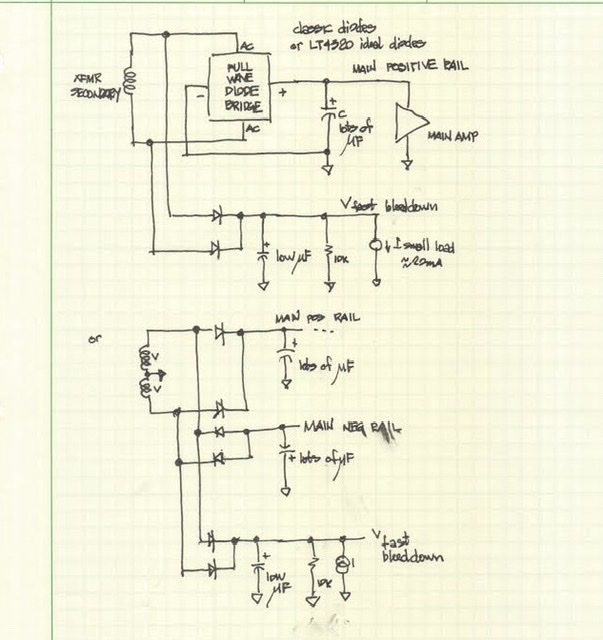 classic diodes
or LT4320 ideal diodes
AC
MAIN POSITIVE RAIL
XFMR
SECONDARY
FULL
WAVE
DIODE
BRIDGE
-
+
+
C
lots of
µF
MAIN AMP
AC
V fast bleeddown
+
low µF
10K
I small load
≈20mA
or
MAIN POS RAIL
V
V
+
lots of µF
MAIN NEG RAIL
+ lots of µF
V fast
bleeddown
+
low
µF
10K
I